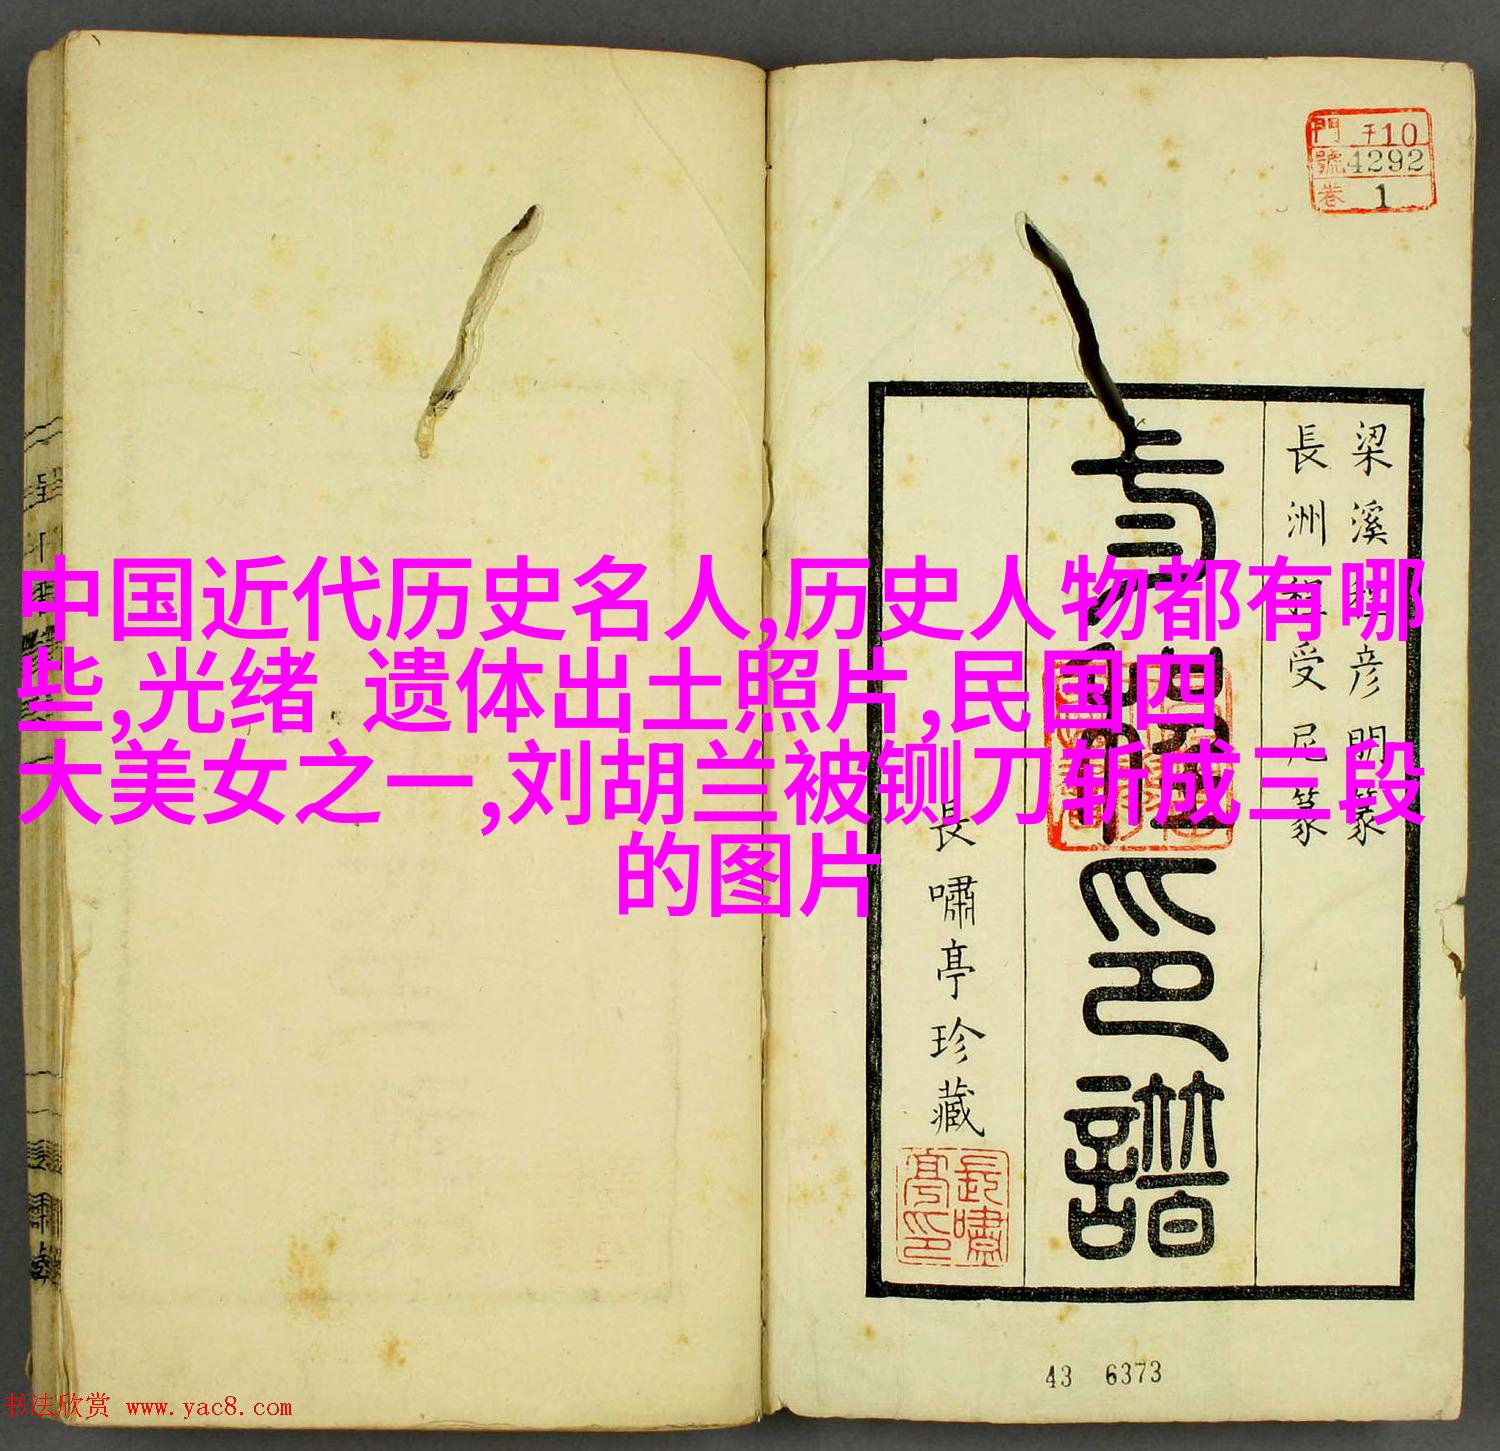 中国近代历史名人,历史人物都有哪
些,光绪 遗体出土照片,民国四
大美女之一,刘胡兰被铡刀斩成三段
的图片
門 子10
號 4292
卷 1
梁溪
彦明篆
長洲
受尼篆
印譜
長嘯亭珍藏
長嘯亭印
43 6373
书法欣赏 www.yac8.com